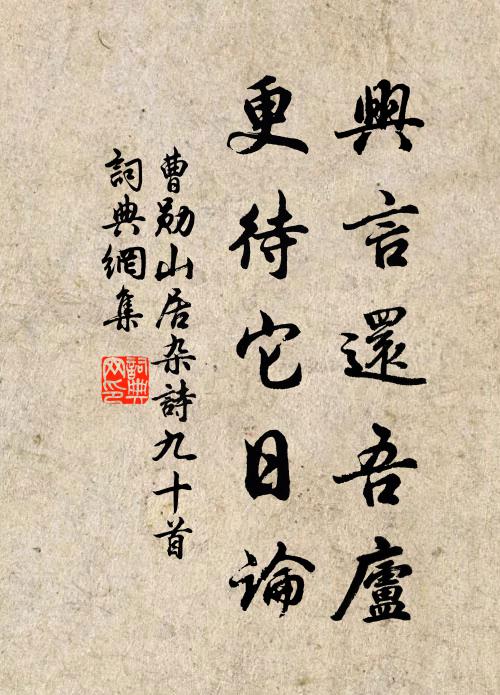 興言還吾廬
更待它日論
曹勛山居杂詩九十首
詞典網集
詞典
网印